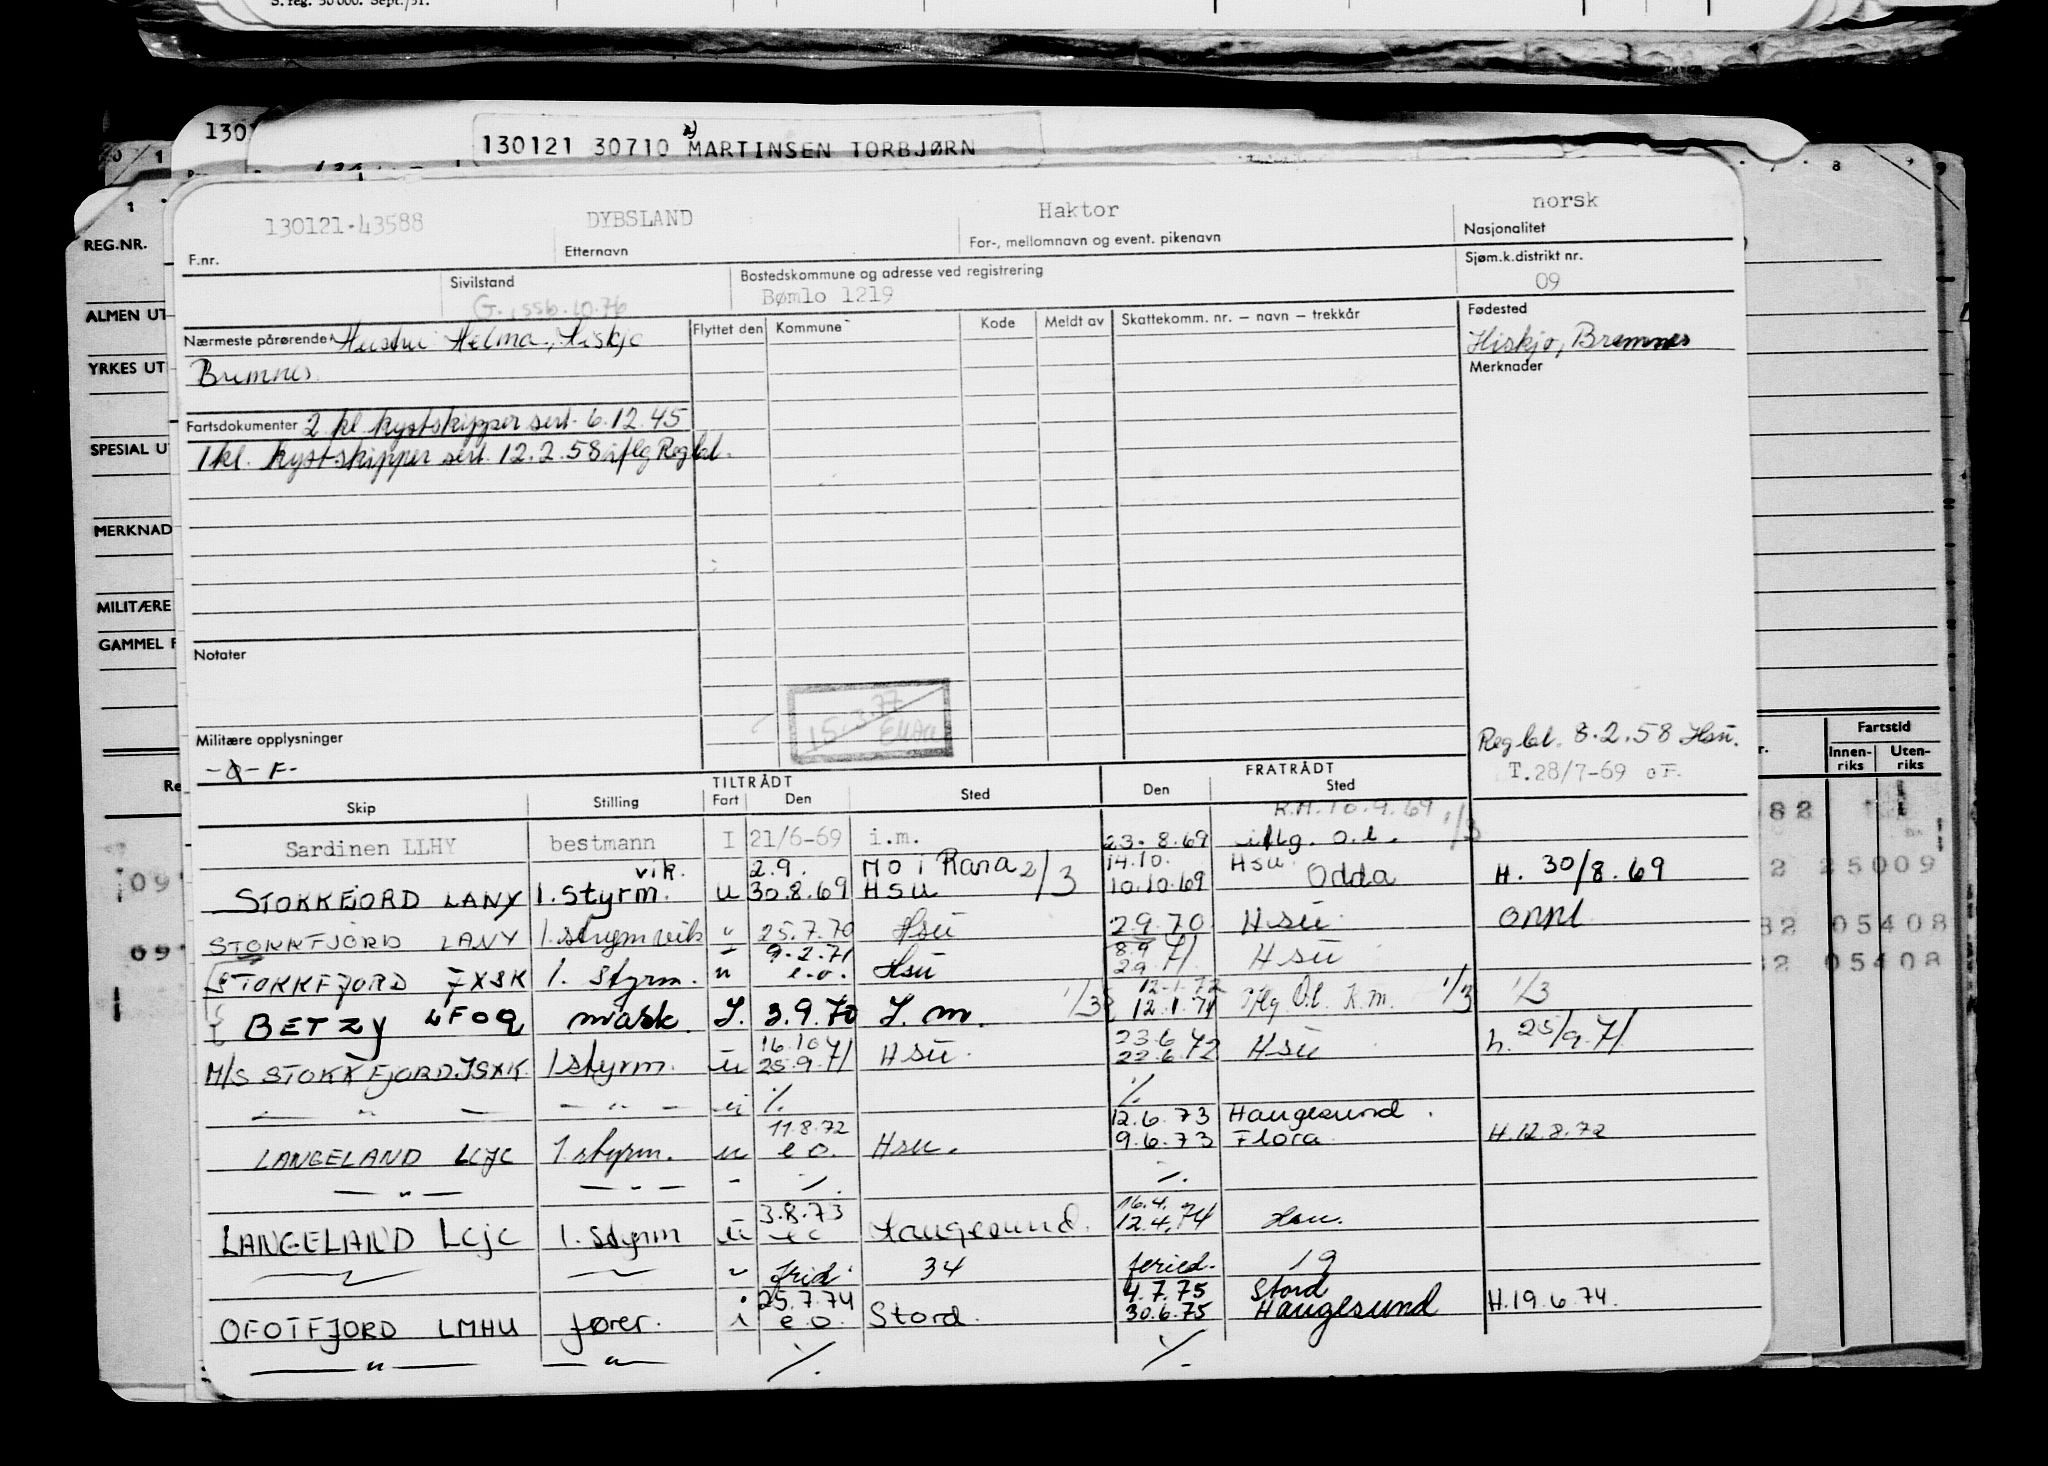 S. reg. 30 000. Sept./51.
130
130121 30710 MARTINSEN TORBJØRN
130121.43588 DYBSLAND Haktor norsk
F.nr. Etternavn For-, mellomnavn og event. pikenavn Nasjonalitet
Sivilstand Bostedskommune og adresse ved registrering Sjøm.k.distrikt nr.
G. ssb. 10.76 Bømlo 1219 09
Nærmeste pårørende Hustru Helma, Hiskjo Flyttet den Kommune Kode Meldt av Skattekomm. nr. — navn — trekkår Fødested
Hiskjo, Bremnes
Bremnes Merknader
Fartsdokumenter 2 kl. kystskipper sert. 6.12.45
1 kl. kystskipper sert. 12.2.58 iflg Reg bl.
Notater
15.3.77
Militære opplysninger
Reg bl. 8.2.58 Hsu.
-F- T.28/7-69 oF.
TILTRÅDT FRATRÅDT
Skip Stilling Fart Den Sted Den Sted
R.M. 10.9.69 1/3
Sardinen LLHY bestmann I 21/6-69 i.m. 23.8.69 iflg. o.l.
vik. 2.9. Mo i Rana 2/3 14.10. Hsu
STOKKFJORD LANY 1. styrm. u 30.8.69 Hsu 10.10.69 Odda H. 30/8.69
STOKKFJORD LANY 1. styrm vik " 25.7.70 Hsu 2.9.70 Hsu
9.2.71 8.9
STOKKEFJORD JXSK 1. styrm. u e.o. Hsu 2.9.71 Hsu
12.1.72
BETZY LFOQ mask. I. 3.9.70 I. m. 1/3 12.1.71 iflg O.l. R.M. 1/3 1/3
16.10 23.6
M/S STOKKFJORD JSXK 1 styrm. u 25.9.71 Hsu. 22.6.72 Hsu h. 25/9.71
— " — — " — u ./. ./.
11.8.72 12.6.73 Haugesund.
LANGELAND LCJC 1 styrm. u e o. Hsu. 9.6.73 Flora H.12.8.72
— " — — " — - ./. ./.
3.8.73 16.4.
LANGELAND LCJC 1. styrm u eo Haugesund. 12.4.74 Hsu.
frid. 34 feried. 19
25.7.74 4.7.75 Stord
OFOTFJORD LMHU fører. i e.o. Stord. 30.6.75 Haugesund H.19.6.74.
— " — — " — ./. ./.
REG.NR.
ALMEN UT
YRKES UT
SPESIAL U
MERKNAD
MILITÆRE
GAMMEL F
Re
Fartstid
Innen-riks Uten-riks
82
25009
82 05408
2 05408
09
09